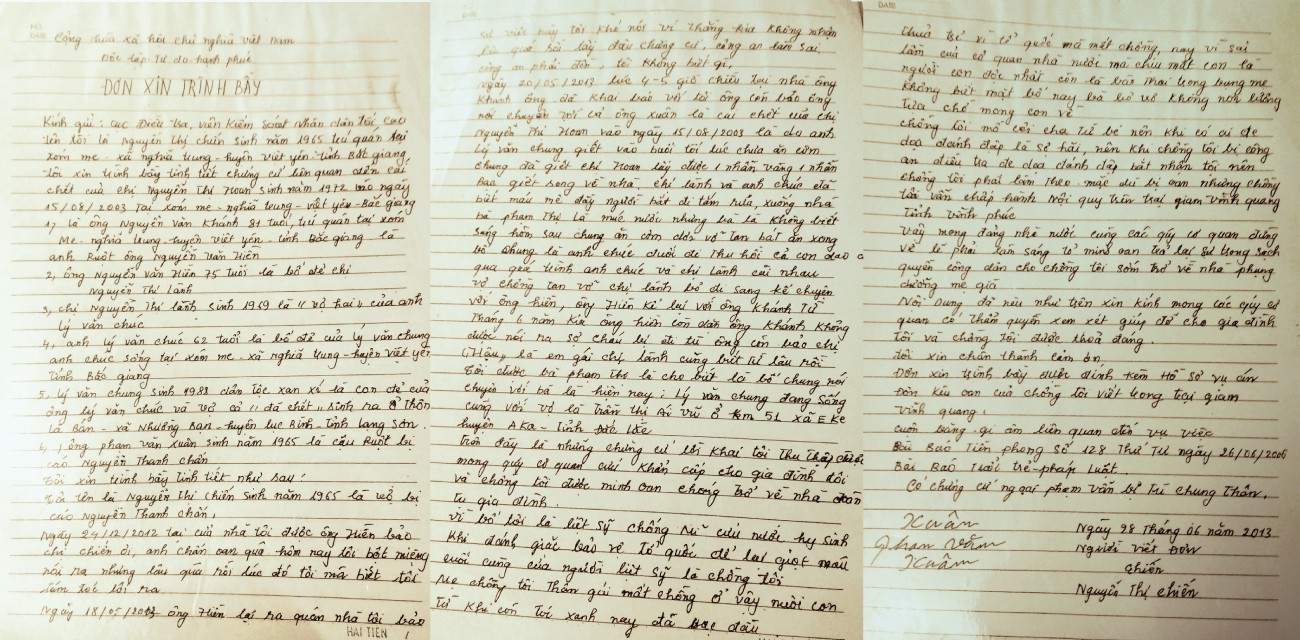 Cộng hòa xã hội chủ nghĩa việt nam
Độc lập Tự do hạnh phúc
ĐƠN XIN TRÌNH BÀY
Kính gửi: cục Điều tra, viện kiểm soát nhân dân tối cao
tên tôi là Nguyễn thị chiến sinh năm 1965 trú quán tại
xóm me - xã nghĩa trung - huyện việt yên - tỉnh Bắc giang
tôi xin trình bày tình tiết chứng cứ liên quan đến cái
chết của chị Nguyễn Thị Hoan sinh năm 1972 vào ngày
15/08/2003 Tại xóm me - nghĩa trung - việt yên - Bắc giang
1, là ông Nguyễn văn Khánh 81 tuổi, trú quán tại xóm
Me - nghĩa trung - huyện việt yên - tỉnh Bắc giang là
anh Ruột ông Nguyễn văn Hiền
2, ông Nguyễn văn Hiền 75 tuổi là bố đẻ chị
Nguyễn Thị Lành
3, chị Nguyễn Thị lành sinh 1969 là "vợ hai" của anh
lý văn chúc
4, anh lý văn chúc 62 tuổi là bố đẻ của lý văn chung
anh chúc sống tại xóm me - xã nghĩa trung - huyện việt yên
tỉnh Bắc giang
5, lý văn chung sinh 1988 dân tộc xan xí là con đẻ của
ông lý văn chúc và vợ cả "đã chết" sinh ra ở thôn
là Bản - xã Nhượng Bạn - huyện lục Bình - tỉnh Lạng sơn
6, ông phạm văn xuân sinh năm 1965 là cậu Ruột bị
cáo Nguyễn Thanh chấn
Tôi xin trình bày tình tiết như sau:
Tôi tên là Nguyễn thị chiến sinh năm 1965 là vợ bị
cáo Nguyễn Thanh chấn.
Ngày 24/12/2012 tại cửa nhà tôi được ông Hiền bảo
chị chiến ơi, anh chấn oan quá hôm nay tôi bột miệng
nói ra những lâu quá rồi lúc đó tôi mà biết tôi
túm tóc lôi ra
Ngày 18/05/2013 ông Hiền lại ra quán nhà tôi bảo
HAI TIEN
sự việc này tôi khó nói vì thằng kia không nhận
là quá hồi lấy đâu chứng cứ, công an làm sai
công an phải đền, tôi không biết gì.
ngày 20/05/2013 lúc 4-5 giờ chiều tại nhà ông
Khánh ông đã khai báo với tôi ông còn bảo ông
nói chuyện với cả ông xuân là cái chết của chị
Nguyễn Thị Hoan vào ngày 15/08/2003 là do anh
Lý văn chung giết vào buổi tối lúc chưa ăn cơm
chung đã giết chị Hoan lấy được 1 nhẫn vàng 1 nhẫn
bạc giết song về nhà, chị lành và anh chúc đã
biết máu me đầy người bắt đi tắm rửa, xuống nhà
bà phạm Thị là múc nước nhưng bà là không biết
sang hôm sau chung ăn còm dơi vỡ tan bát ăn xong
bỏ chung là anh chúc đuổi đi Thu hồi cả con dao
qua quá trình anh chúc và chị Lành cãi nhau
vợ chồng tan vỡ chị lành bỏ đi sang kể chuyện
với ông hiền, ông Hiền kể lại với ông Khánh Từ
Tháng 6 năm kia ông hiền còn dặn ông Khánh không
được nói ra sợ cháu bị đi tù ông còn bảo chị
"Hậu" là em gái chị lành cũng biết từ lâu rồi
Tôi được bà phạm Thị là cho biết là bố chung nói
chuyện với bà là hiện nay: Lý văn chung đang sống
cùng với vợ là trần thị ái vũ ở Km 51 xã EKe
huyện AKa - Tỉnh Đắc lắc
trên đây là những chứng cứ lời khai tôi Thu Thập được
mong quý cơ quan cứu khẩn cấp cho gia đình tôi
và chồng tôi được minh oan chóng trở về nhà đoàn
tụ gia đình.
vì bố tôi là liệt sỹ chống Mĩ cứu nước hy sinh
khi đánh giặc bảo vệ tổ quốc để lại giọt máu
cuối cùng của người liệt sỹ là chồng tôi
Mẹ chồng tôi Thân gái mất chồng ở vậy nuôi con
từ khi còn tóc xanh nay đã bạc đầu
DATE
thuở bé vì tổ quốc mà mất chồng, nay vì sai
lầm của cơ quan nhà nước mà chịu mất con là
người con độc nhất còn là bào thai trong bụng mẹ
không biết mặt bố nay bà bơ vơ không nơi nương
tựa chờ mong con về
chồng tôi mồ côi cha từ bé nên khi có ai đe
doạ đánh đập là sợ hãi, nên khi chồng tôi bị công
an điều tra đe doạ đánh đập bắt nhận tội nên
chồng tôi phải làm theo. mặc dù bị oan nhưng chồng
tôi vẫn chấp hành Nội quy trên trại giam vĩnh quang
tỉnh vĩnh phúc
vậy mong đảng nhà nước cùng các qúy cơ quan đứng
về lẽ phải làm sáng tỏ minh oan trả lại sự trong sạch
quyền công dân cho chồng tôi sớm trở về nhà phụng
dưỡng mẹ già
Nội dung đã nêu như trên xin kính mong các qúy cơ
quan có thẩm quyền xem xét giúp đỡ cho gia đình
tôi và chồng tôi được thoả đáng.
tôi xin chân thành cảm ơn.
Đơn xin trình bày được đính kèm Hồ sơ vụ án
Đơn kêu oan của chồng tôi viết trong trại giam
vĩnh quang.
cuốn băng gi âm liên quan đến vụ việc
Bài Báo Tiền phong số 128 Thứ Tư ngày 26/06/2006
Bài Báo Tuổi trẻ - pháp luật.
Có chứng cứ ngoại phạm vẫn bị Tù chung Thân.
Xuân
Phạm Văn
Xuân
Ngày 28 Tháng 06 năm 2013
Người viết Đơn
chiến
Nguyễn Thị chiến